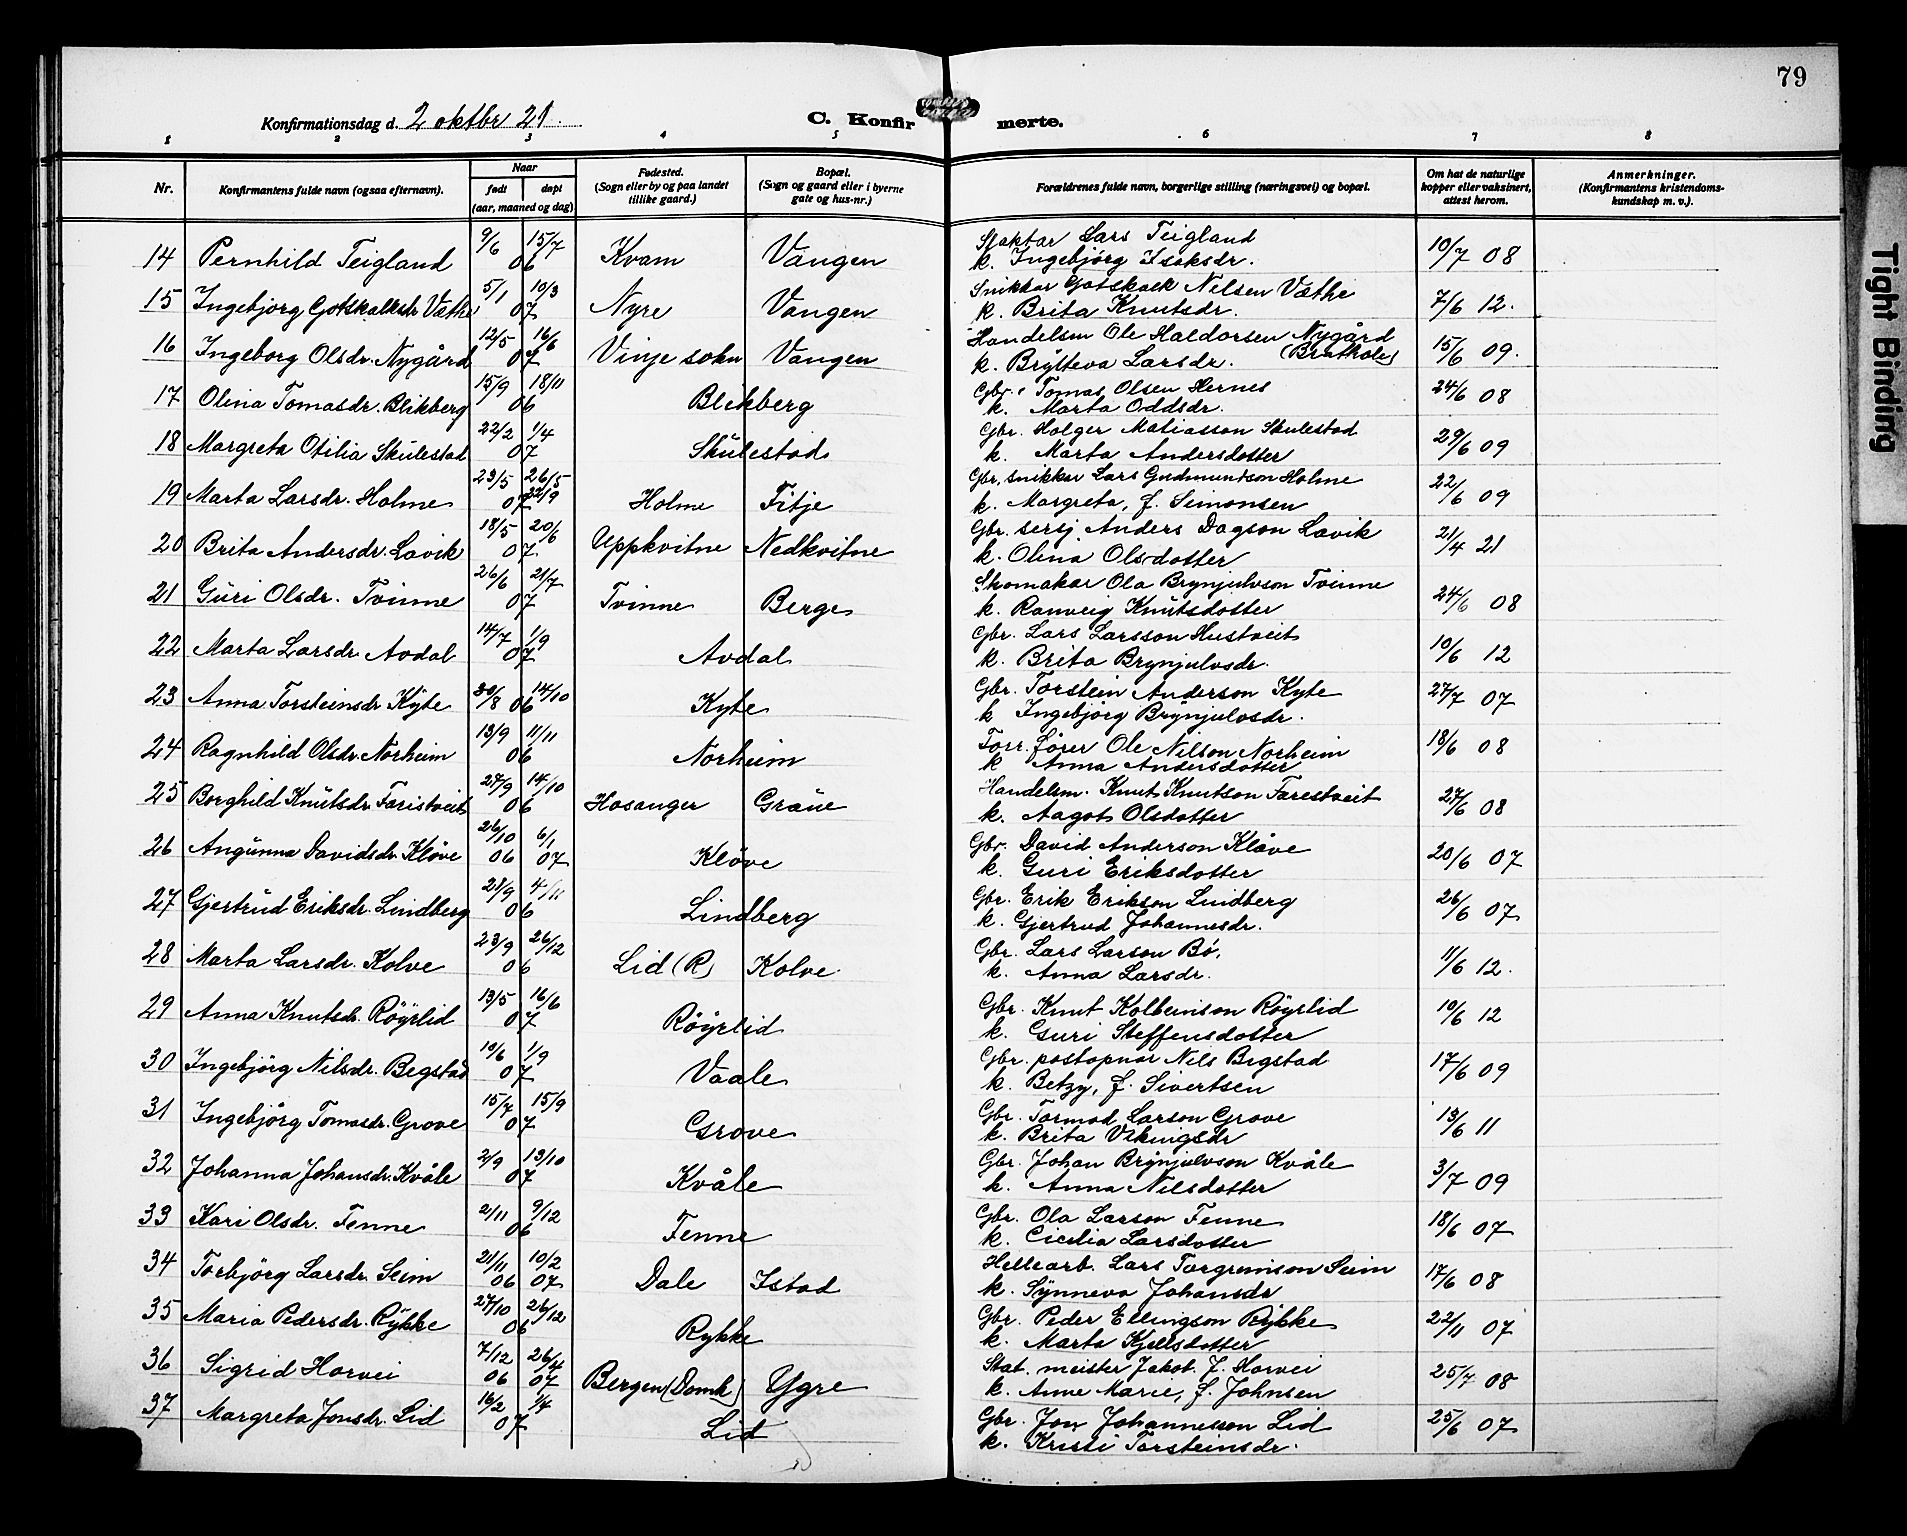 79
Konfirmationsdag d. 2 oktbr 21.
C. Konfirmerte.
1 2 3 4 5 6 7 8
Nr. Konfirmantens fulde navn (ogsaa efternavn). Naar født døpt (aar, maaned og dag) Fødested. (Sogn eller by og paa landet tillike gaard.) Bopæl. (Sogn og gaard eller i byerne gate og hus-nr.) Forældrenes fulde navn, borgerlige stilling (næringsvei) og bopæl. Om hat de naturlige kopper eller vaksinert, attest herom. Anmerkninger. (Konfirmantens kristendoms-kundskap m. v.).
14 Pernhild Teigland 9/6 15/7 06 Kvam Vangen Slaktar Lars Teigland 10/7 08
k. Ingebjörg Isaksdr.
15 Ingebjörg Gotskalksdr. Væthe 5/1 10/3 07 Nyre Vangen Snikkar Gotskalk Nilsen Væthe 7/6 12.
k. Brita Knutsdr.
16 Ingeborg Olsdr. Nygård 12/5 16/6 07 Vinje sokn Vangen Handelsm Ole Haldorsen Nygård 15/6 09.
k. Brytteva Larsdr. (Brathole)
17 Olina Tomasdr. Blikberg 15/9 18/11 06 Blikberg Gbr. Tomas Olsen Hernes 24/6 08
k. Marta Oddsdr.
18 Margreta Otilia Skulestad 22/2 1/4 07 Skulestad Gbr. Holger Matiasson Skulestad 29/6 09
k. Marta Andersdotter
19 Marta Larsdr. Holme 23/5 26/5 22/9 07 Holme Fitje Gbr. snikkar Lars Gudmundson Holme 22/6 09
k. Margreta, f. Simonsen
20 Brita Andersdr. Lavik 18/5 20/6 07. Uppkvitne Nedkvitne Gbr. sersj. Anders Dagson Lavik 21/4 21
k. Olina Olsdotter
21 Guri Olsdr. Tvinne 26/6 21/7 07 Tvinne Berge Skomakar Ola Brynjulvson Tvinne 24/6 08
k. Ranveig Knutsdotter
22 Marta Larsdr. Avdal 14/7 1/9 07 Avdal Gbr. Lars Larsson Hustveit 10/6 12
k. Brita Brynjulvsdr.
23 Anna Torsteinsdr. Kyte 30/8 14/10 06 Kyte Gbr. Torstein Anderson Kyte 27/7 07
k Ingebjörg Brynjulvsdr.
24 Ragnhild Olsdr. Norheim 13/9 11/11 06 Norheim Forr. förer Ole Nilson Norheim 18/6 08
k Anna Andersdotter
25 Borghild Knutsdr. Faristveit 27/9 14/10 06 Hosanger Graue Handelsm. Knut Knutson Farestveit 27/6 08
k. Aagot Olsdotter
26 Angunna Davidsdr. Klöve 26/10 06 6/1 07 Klöve Gbr. David Anderson Klöve 20/6 07
k. Guri Eriksdotter
27 Gjertrud Eriksdr. Lindberg 21/9 4/11 06 Lindberg Gbr. Erik Erikson Lindberg 26/6 07
k. Gjertrud Johannesdr.
28 Marta Larsdr. Kolve 23/9 26/12 06 Lid (R) Kolve Gbr. Lars Larson Bö. 11/6 12.
k. Anna Larsdr.
29 Anna Knutsdr. Röyrlid 13/5 16/6 07 Röyrlid Gbr. Knut Kolbeinson Röyrlid 10/6 12
k. Guri Steffensdotter
30 Ingebjörg Nilsdr. Begstad 10/6 1/9 07 Vaale Gbr. postopnar Nils Begstad 17/6 09
k. Betzy, f. Sivertsen
31 Ingebjörg Tomasdr. Grove 15/7 15/9 07 Grove Gbr. Tormod Larson Grove 13/6 11
k. Brita Vikingsdr
32 Johanna Johansdr. Kvåle 2/9 13/10 07 Kvåle Gbr. Johan Brynjulvson Kvåle 3/7 09
k. Anna Nilsdotter
33 Kari Olsdr. Fenne 2/11 9/12 06 Fenne Gbr. Ola Larson Fenne 18/6 07
k. Cicilia Larsdotter
34 Torbjörg Larsdr. Seim 21/11 06 10/2 07 Dale Istad Hellearb. Lars Torgrimson Seim 17/6 08
k. Synneva Johansdr
35 Maria Pedersdr. Rykke 27/10 26/12 06 Rykke Gbr. Peder Ellingson Rykke 22/11 07
k. Marta Kjellsdotter
36 Sigrid Horvei 7/12 06 26/4 07 Bergen (Domk) Ygre Stat. meister Jakob J. Horvei 25/7 08
k. Anne Marie, f. Johnsen
37 Margreta Jonsdr. Lid 16/2 1/4 07 Lid Gbr. Jon Johannesson Lid 25/6 07
k. Kristi Torsteinsdr.
Tight Binding